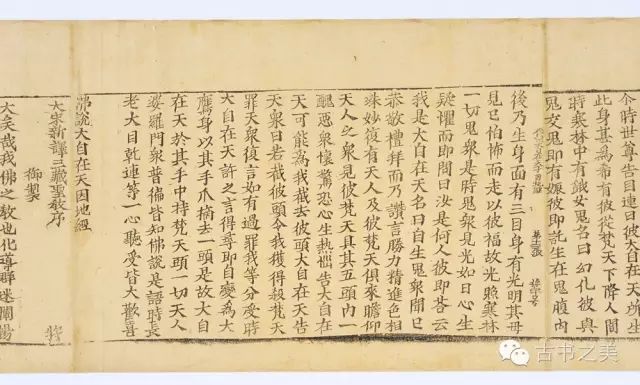 尒時世尊告目連曰彼大自在天所生
此身甚為希有彼從梵天下降人間
時寒林中有餓女鬼名曰幻化彼與
鬼交鬼即有娠彼即託生在鬼腹內
後乃生身面有三目身有光明其母
見已怕怖而走以彼福故光照寒林
一切鬼衆是時鬼衆見光如日心生
疑懼而即問曰汝是何人彼即荅云
我是大自在天名曰自生鬼衆聞已
恭敬禮拜而乃讚言勝力精進色相
殊妙復有天人及彼梵天俱來瞻仰
天人之衆見彼梵天具其五頭內一
醜惡衆懷驚恐心生熱惱告大自在
天可能為我截去彼頭大自在天告
天衆曰若截彼頭令我獲得殺梵天
罪天衆復言如有過罪我等分受時
大自在天許之言得尋即自變為大
鷹身以其手爪摘去一頭是故大自
在天於其手中持梵天頭一切天人
婆羅門衆普徧皆知佛說是語時長
老大目乾連等一心聽受皆大歡喜
佛說大自在天因地經
大宋新譯三藏聖教序
御製
大矣哉我佛之教也化導群迷闡揚
古书之美